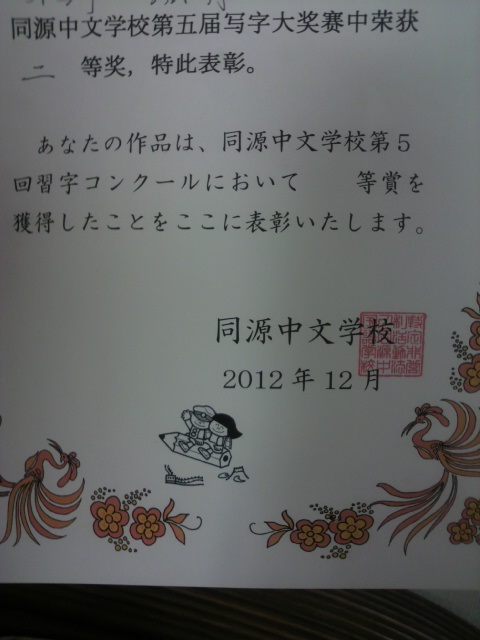 同源中文学校第五届写字大奖赛中荣获
二 等奖，特此表彰。
あなたの作品は、同源中文学校第５
回習字コンクールにおいて 等賞を
獲得したことをここに表彰いたします。
同源中文学校
2012 年 12 月